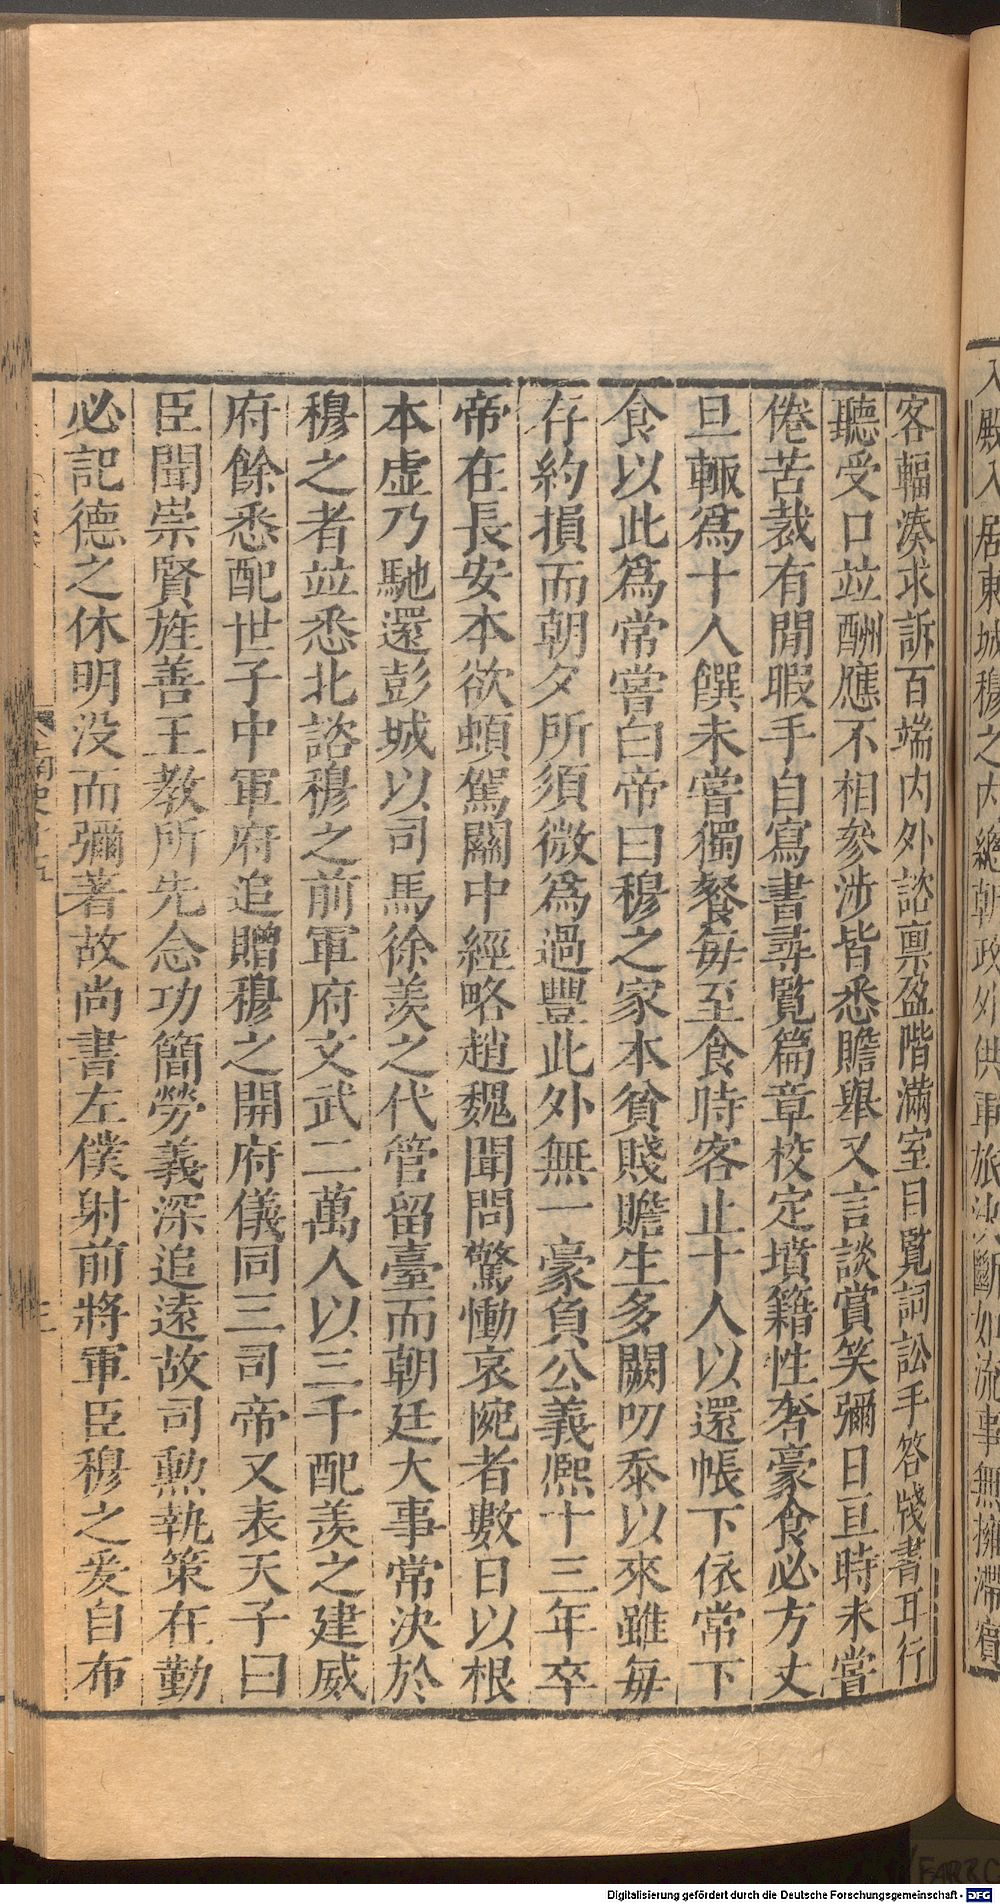 入殿入居東城穆之内總朝政外供軍旅決斷如流事無擁滯賓
客輻湊求訴百端内外諮禀盈階滿室目覧詞訟手答牋書耳行
聽受口竝酬應不相參涉皆悉贍舉又言談賞笑彌日亘時未嘗
倦苦裁有閒暇手自寫書尋覧篇章校定墳籍性奢豪食必方丈
旦輙爲十人饌未嘗獨餐毎至食時客止十人以還帳下依常下
食以此爲常嘗白帝曰穆之家本貧賤贍生多闕叨忝以來雖毎
存約損而朝夕所須微爲過豐此外無一豪負公義熈十三年卒
帝在長安本欲頓駕關中經略趙魏聞問驚慟哀惋者數日以根
本虚乃馳還彭城以司馬徐羨之代管留臺而朝廷大事常決於
穆之者竝悉北諮穆之前軍府文武二萬人以三千配羨之建威
府餘悉配世子中軍府追贈穆之開府儀同三司帝又表天子曰
臣聞崇賢旌善王教所先念功簡勞義深追遠故司勲執策在勤
必記德之休明没而彌著故尚書左僕射前將軍臣穆之爰自布
南史十五
三
Digitalisierung gefördert durch die Deutsche Forschungsgemeinschaft - DFG